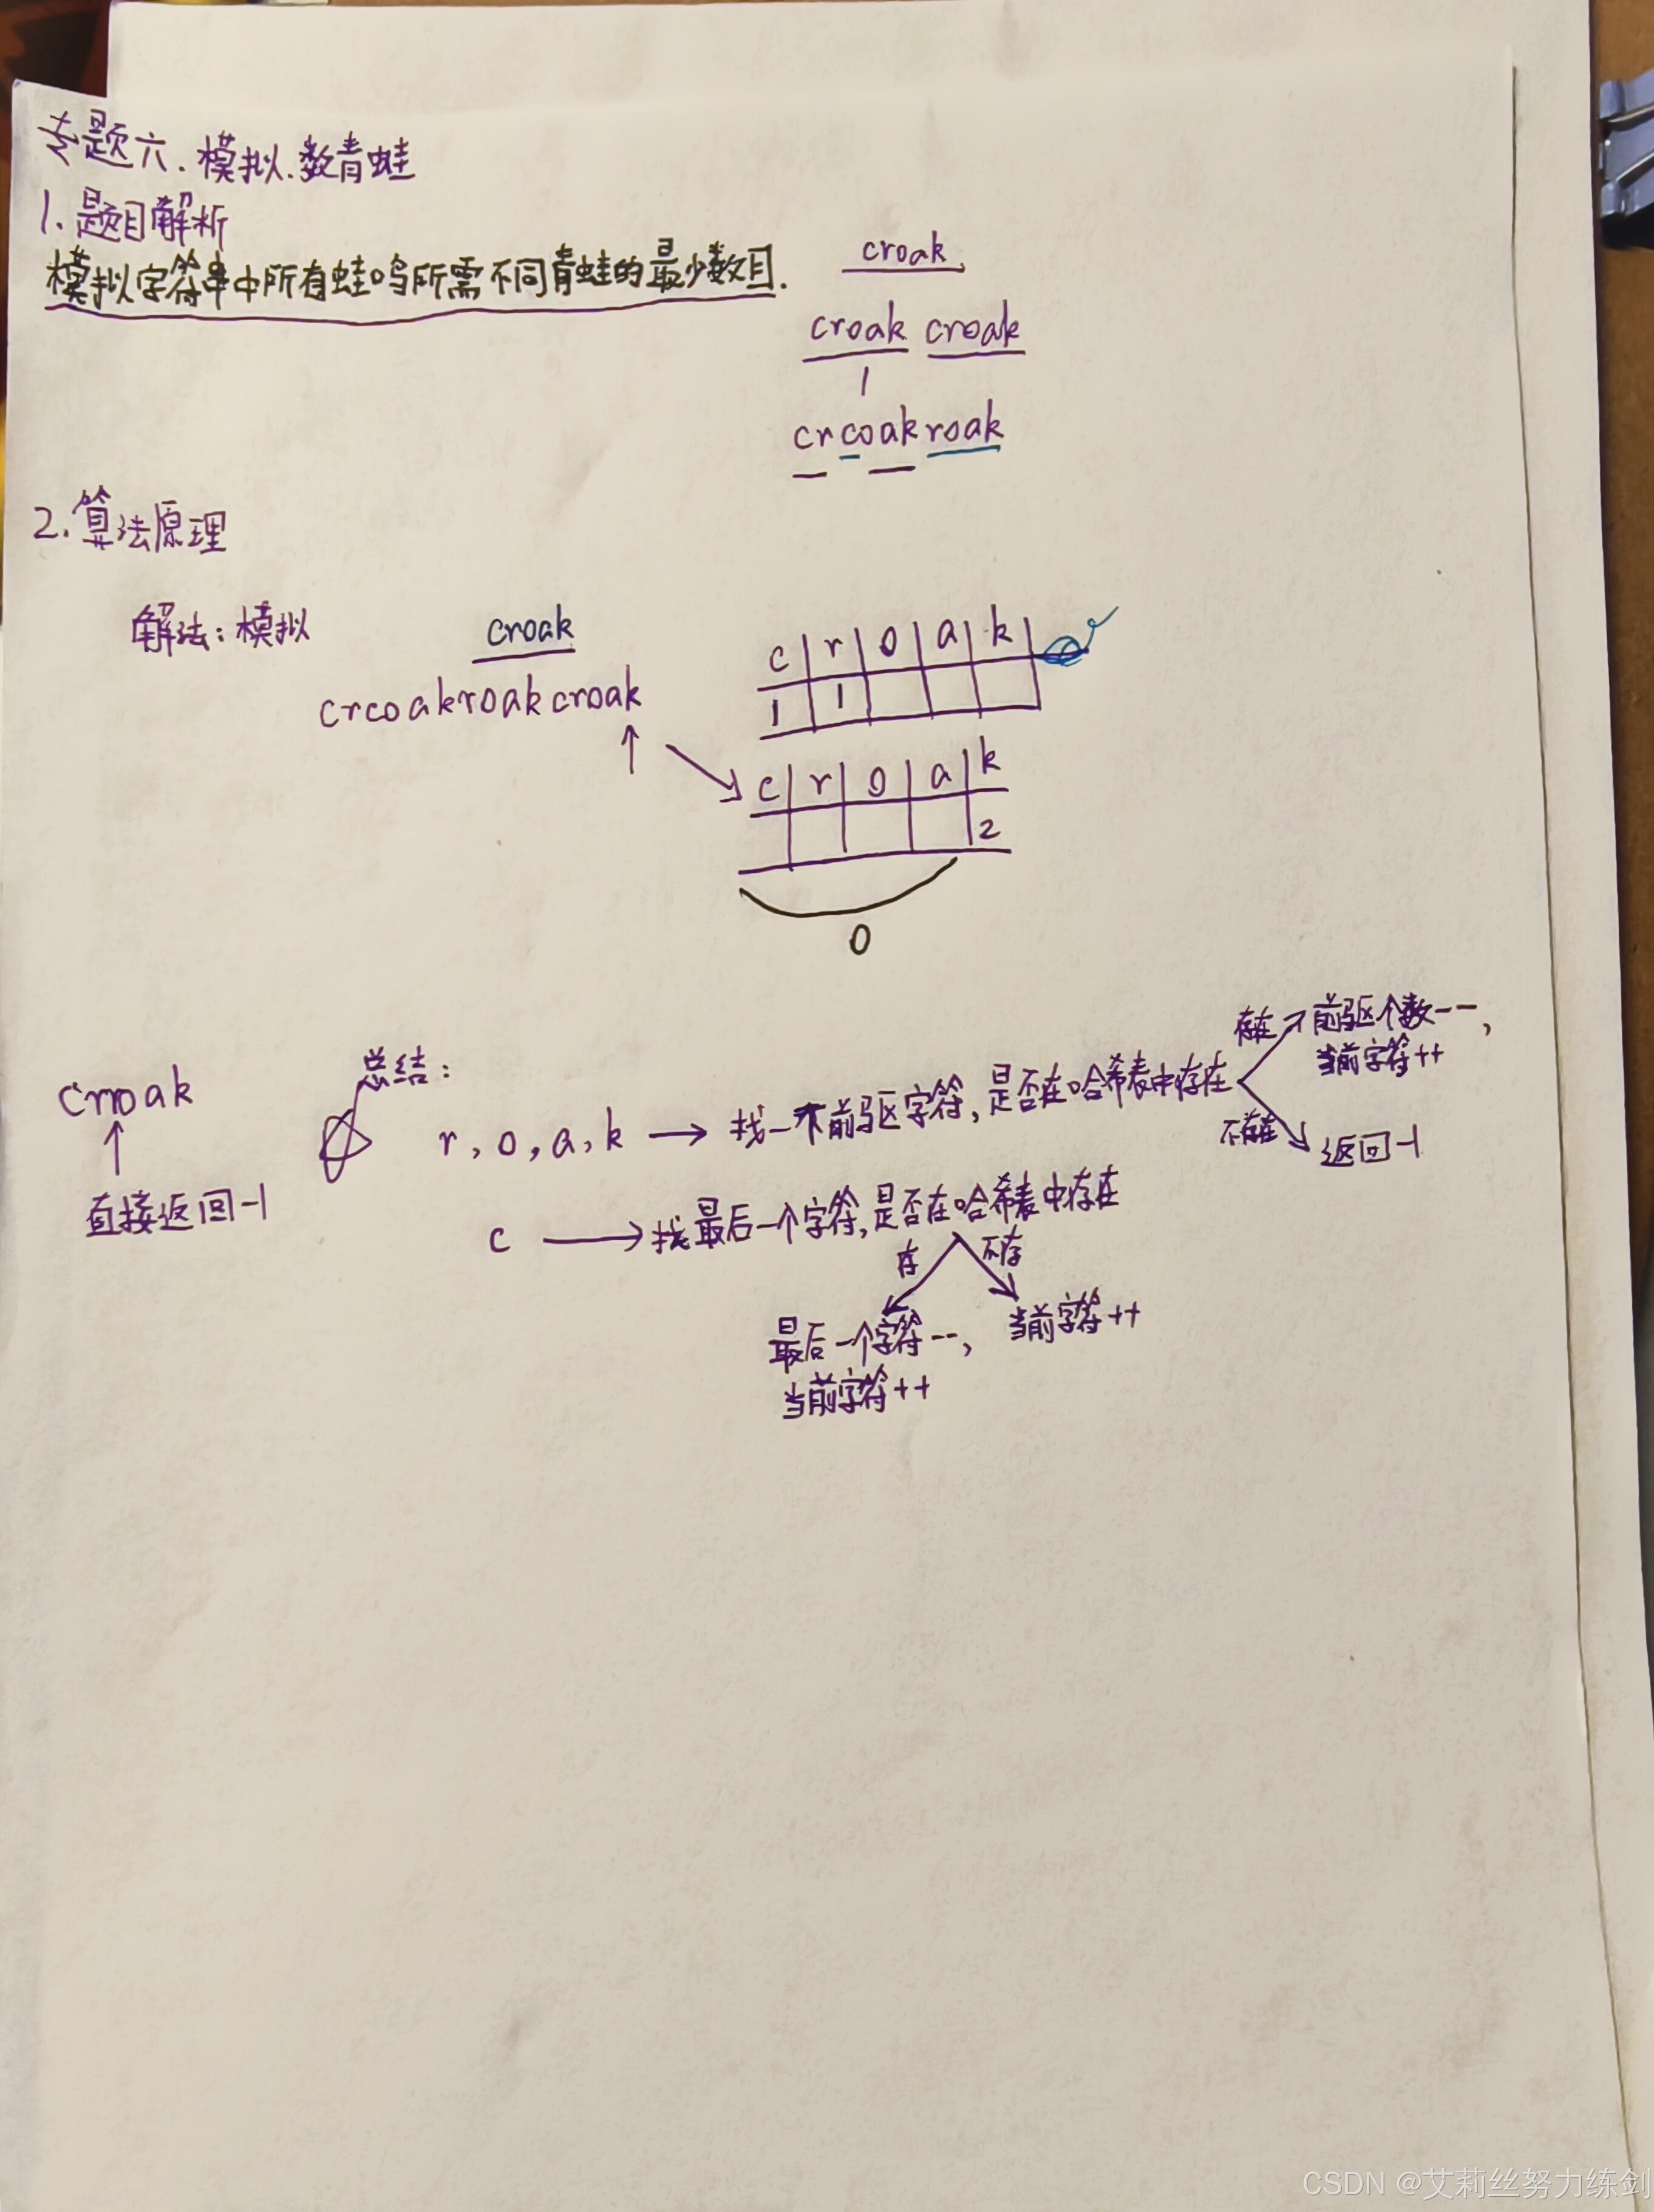 专题六.模拟.数青蛙
1.题目解析
模拟字符串中所有蛙鸣所需不同青蛙的最少数目.
croak
croak croak
1
crcoakroak
2.算法原理
解法:模拟
croak
crcoakroakcroak
c r o a k
1 1
c r o a k
2
0
crroak
直接返回-1
总结:
r,o,a,k → 找一下前驱字符,是否在哈希表中存在
存在 前驱个数--,
当前字符++
不存在 返回-1
c → 找最后一个字符,是否在哈希表中存在
存 不存
最后一个字符--,
当前字符++
当前字符++
CSDN @艾莉丝努力练剑